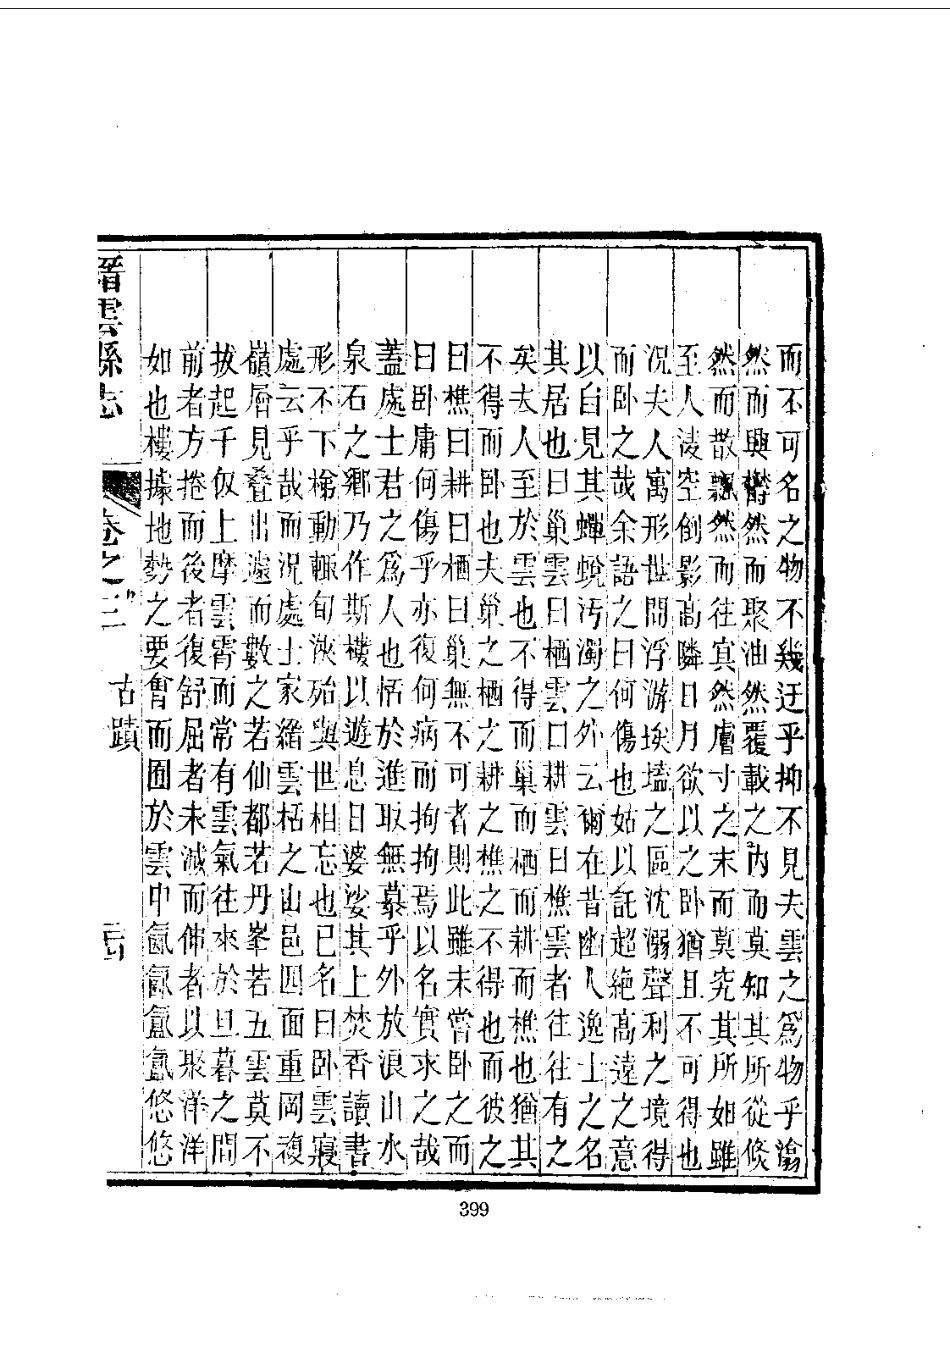 而不可名之物不幾迂乎抑不見夫雲之爲物乎滃
然而興鬱然而聚油然覆載之內而莫知其所從倏
然而散飄然而往寘然膚寸之末而莫究其所如雖
至人淩空倒影高隣日月欲以之卧猶且不可得也
况夫人寓形世間浮游埃壒之區沈溺聲利之境得
而卧之哉余語之曰何傷也姑以託超絶高遠之意
以自見其蟬蛻汚濁之外云爾在昔幽人逸士之名
其居也曰巢雲曰栖雲曰耕雲曰樵雲者往往有之
矣夫人至於雲也不得而巢而栖而耕而樵也猶其
不得而卧也夫巢之栖之耕之樵之不得也而彼之
曰樵曰耕曰栖曰巢無不可者則此雖未嘗卧之而
曰卧庸何傷乎亦復何病而拘拘焉以名實求之哉
蓋處士君之爲人也恬於進取無慕乎外放浪山水
泉石之鄉乃作斯樓以遊息日婆娑其上焚香讀書
形不下榻動輒旬浹殆與世相忘也已名曰卧雲寢
處云乎哉而況處士家縉雲栝之山邑四面重岡複
嶺層見疊出遠而數之若仙都若丹峯若五雲莫不
拔起千仞上摩雲霄而常有雲氣往來於旦暮之間
前者方捲而後者復舒屈者未減而伸者以聚洋洋
如也樓據地勢之要會而囿於雲中氤氤氳氳悠悠
縉雲縣志 卷之三 古蹟
399